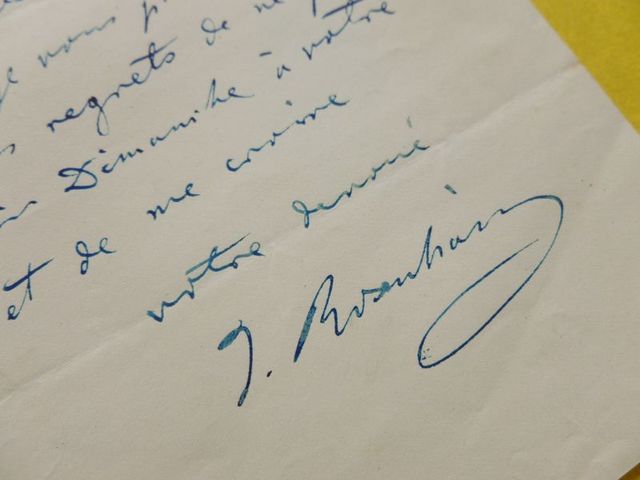 je vous p
regrets de ne p
Dimanche à votre
et de me croire
votre dévoué
J. Rosenhain